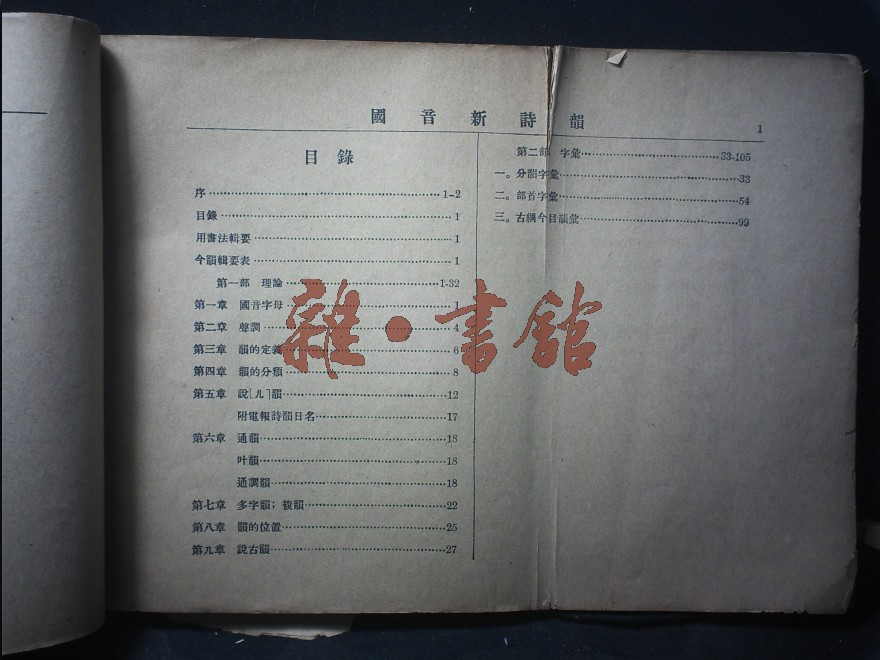 國音新詩韻 1
目錄
序 1-2
目錄 1
用書法輯要 1
今韻輯要表 1
第一部 理論 1-32
第一章 國音字母 1
第二章 聲調 4
第三章 韻的定義 6
第四章 韻的分類 8
第五章 說[ㄦ]韻 12
附電報詩韻日名 17
第六章 通韻 18
叶韻 18
通調韻 18
第七章 多字韻；複韻 22
第八章 韻的位置 25
第九章 說古韻 27
第二部 字彙 33-105
一。分韻字彙 33
二。部首字彙 54
三。古綱今目韻彙 99
雜·書館